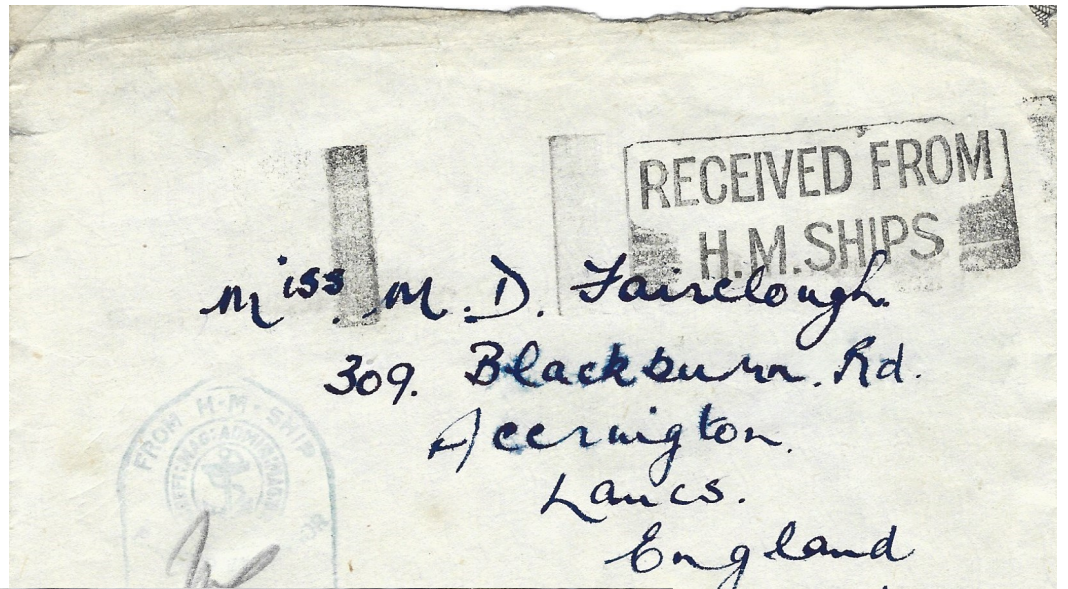 RECEIVED FROM
H.M.SHIPS
Miss. M. D. Fairclough.
309. Blackburn. Rd.
Accrington.
Lancs.
England
FROM H-M-SHIP